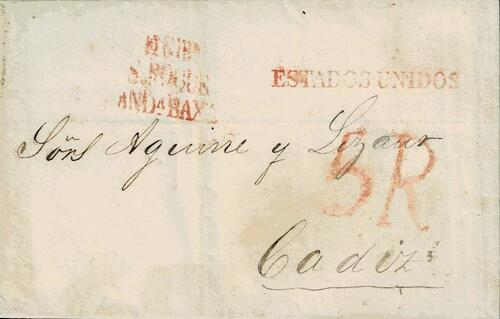 S. ROQUE
ANDA BAXA
ESTADOS UNIDOS
Sőrs Aguirre y Lizaur
5R
Cadiz